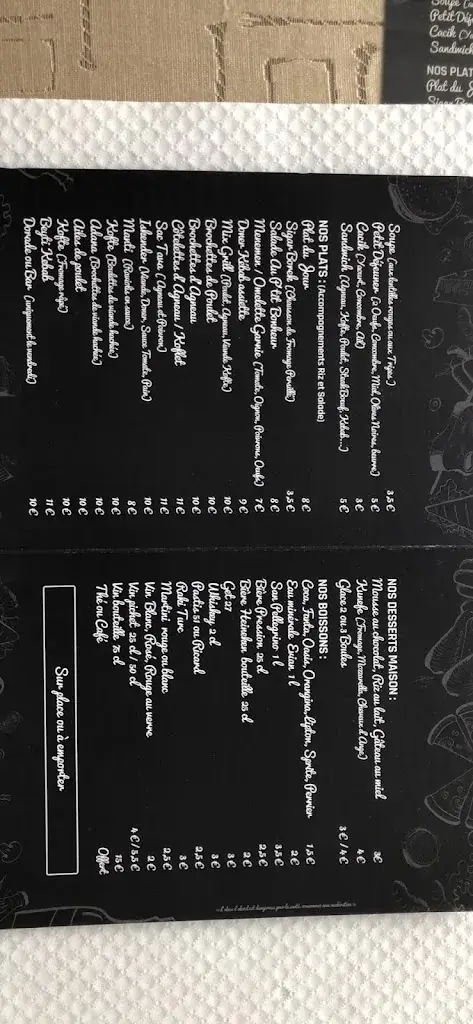 Soupe (aux lentilles rouges ou aux Tripes) 3,5 €
Petit Déjeuner (2 Oeufs, Concombre, Miel, Olives Noires, beurre) 5 €
Cacik (Yaourt, Concombre, Ail) 3 €
Sandwich (Agneau, Kefte, Poulet, Steak Boeuf, Kebab...) 5 €
NOS PLATS : (Accompagnements Riz et Salade)
Plat du Jour 8 €
Sigar Borek (Chausson de Fromage Persillé) 3,5 €
Salade Au P'tit Bonheur 8 €
Menemen / Omelette Garnie (Tomate, Oignon, Poivrons, Oeufs) 7 €
Doner Kebab assiette 9 €
Mix Grill (Poulet, Agneau, Viande Kefte) 10 €
Brochettes de Poulet 10 €
Brochettes d'Agneau 10 €
Côtelettes d'Agneau / Keflet 11 €
Sac Tava (Agneau et Poivron) 11 €
Iskender (Viande, Doner, Sauce Tomate, Pain) 10 €
Manti (Raviolis en sauce) 8 €
Kefte (Boulettes de viande hachée) 10 €
Adana (Brochettes de viande hachée) 10 €
Ailes de poulet 10 €
Kefte (Fromage râpé) 10 €
Beyti Kebab 11 €
Dorade ou Bar (uniquement le vendredi) 10 €
NOS DESSERTS MAISON :
Mousse au chocolat, Riz au lait, Gâteau au miel 3€
Kunefe (Fromage, Mozzarella, Cheveux d'Ange) 4 €
Glace 2 ou 3 Boules 3 € / 4 €
NOS BOISSONS :
Coca, Fanta, Oasis, Orangina, Lipton, Sprite, Perrier 1,5 €
Eau minérale Evian 1 l 2 €
San Pellegrino 1 l 3,5 €
Bière Pression 25 cl 2,5 €
Bière Heineken bouteille 25 cl 2 €
Get 27 3 €
Whiskey 2 cl 3 €
Pastis 51 ou Ricard 2,5 €
Raki Turc 3 €
Martini rouge ou blanc 2,5 €
Vin Blanc, Rosé, Rouge au verre 2 €
Vin pichet 25 cl / 50 cl 4 € / 5,5 €
Vin bouteille 75 cl 15 €
Thé ou Café Offert
Sur place ou à emporter
Petit Déj
Cacik
Sandwich
NOS PLAT
Plat du